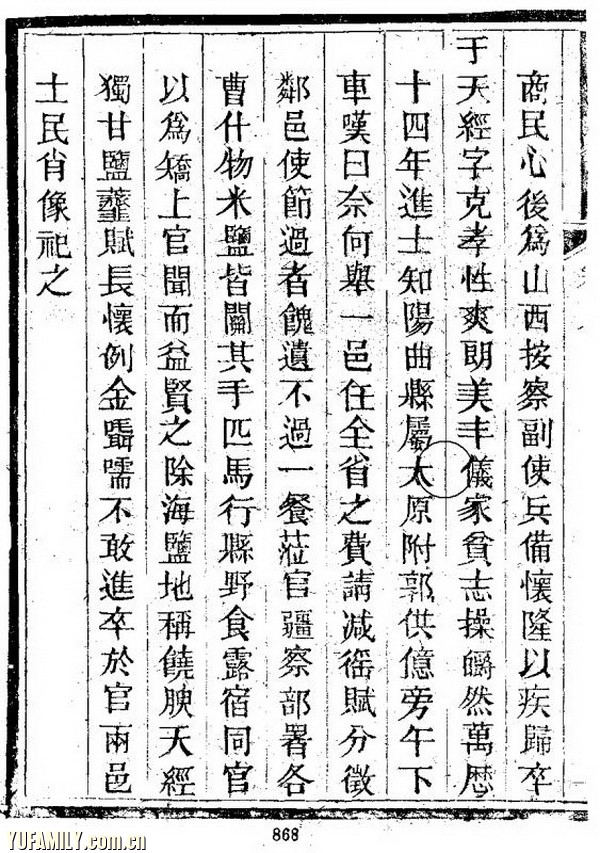 商民心後爲山西按察副使兵備懷隆以疾歸卒
于天經字克孝性爽朗美丰儀家貧志操皭然萬曆
十四年進士知陽曲縣屬太原附郭供億旁午下
車嘆曰奈何舉一邑任全省之費請減徭賦分徵
鄰邑使節過者餽遺不過一餐蒞官疆察部署各
曹什物米鹽皆關其手匹馬行縣野食露宿同官
以爲矯上官聞而益賢之除海鹽地稱饒腴天經
獨甘鹽虀賦長懷例金囁嚅不敢進卒於官兩邑
士民肖像祀之
868
YUFAMILY.com.cn